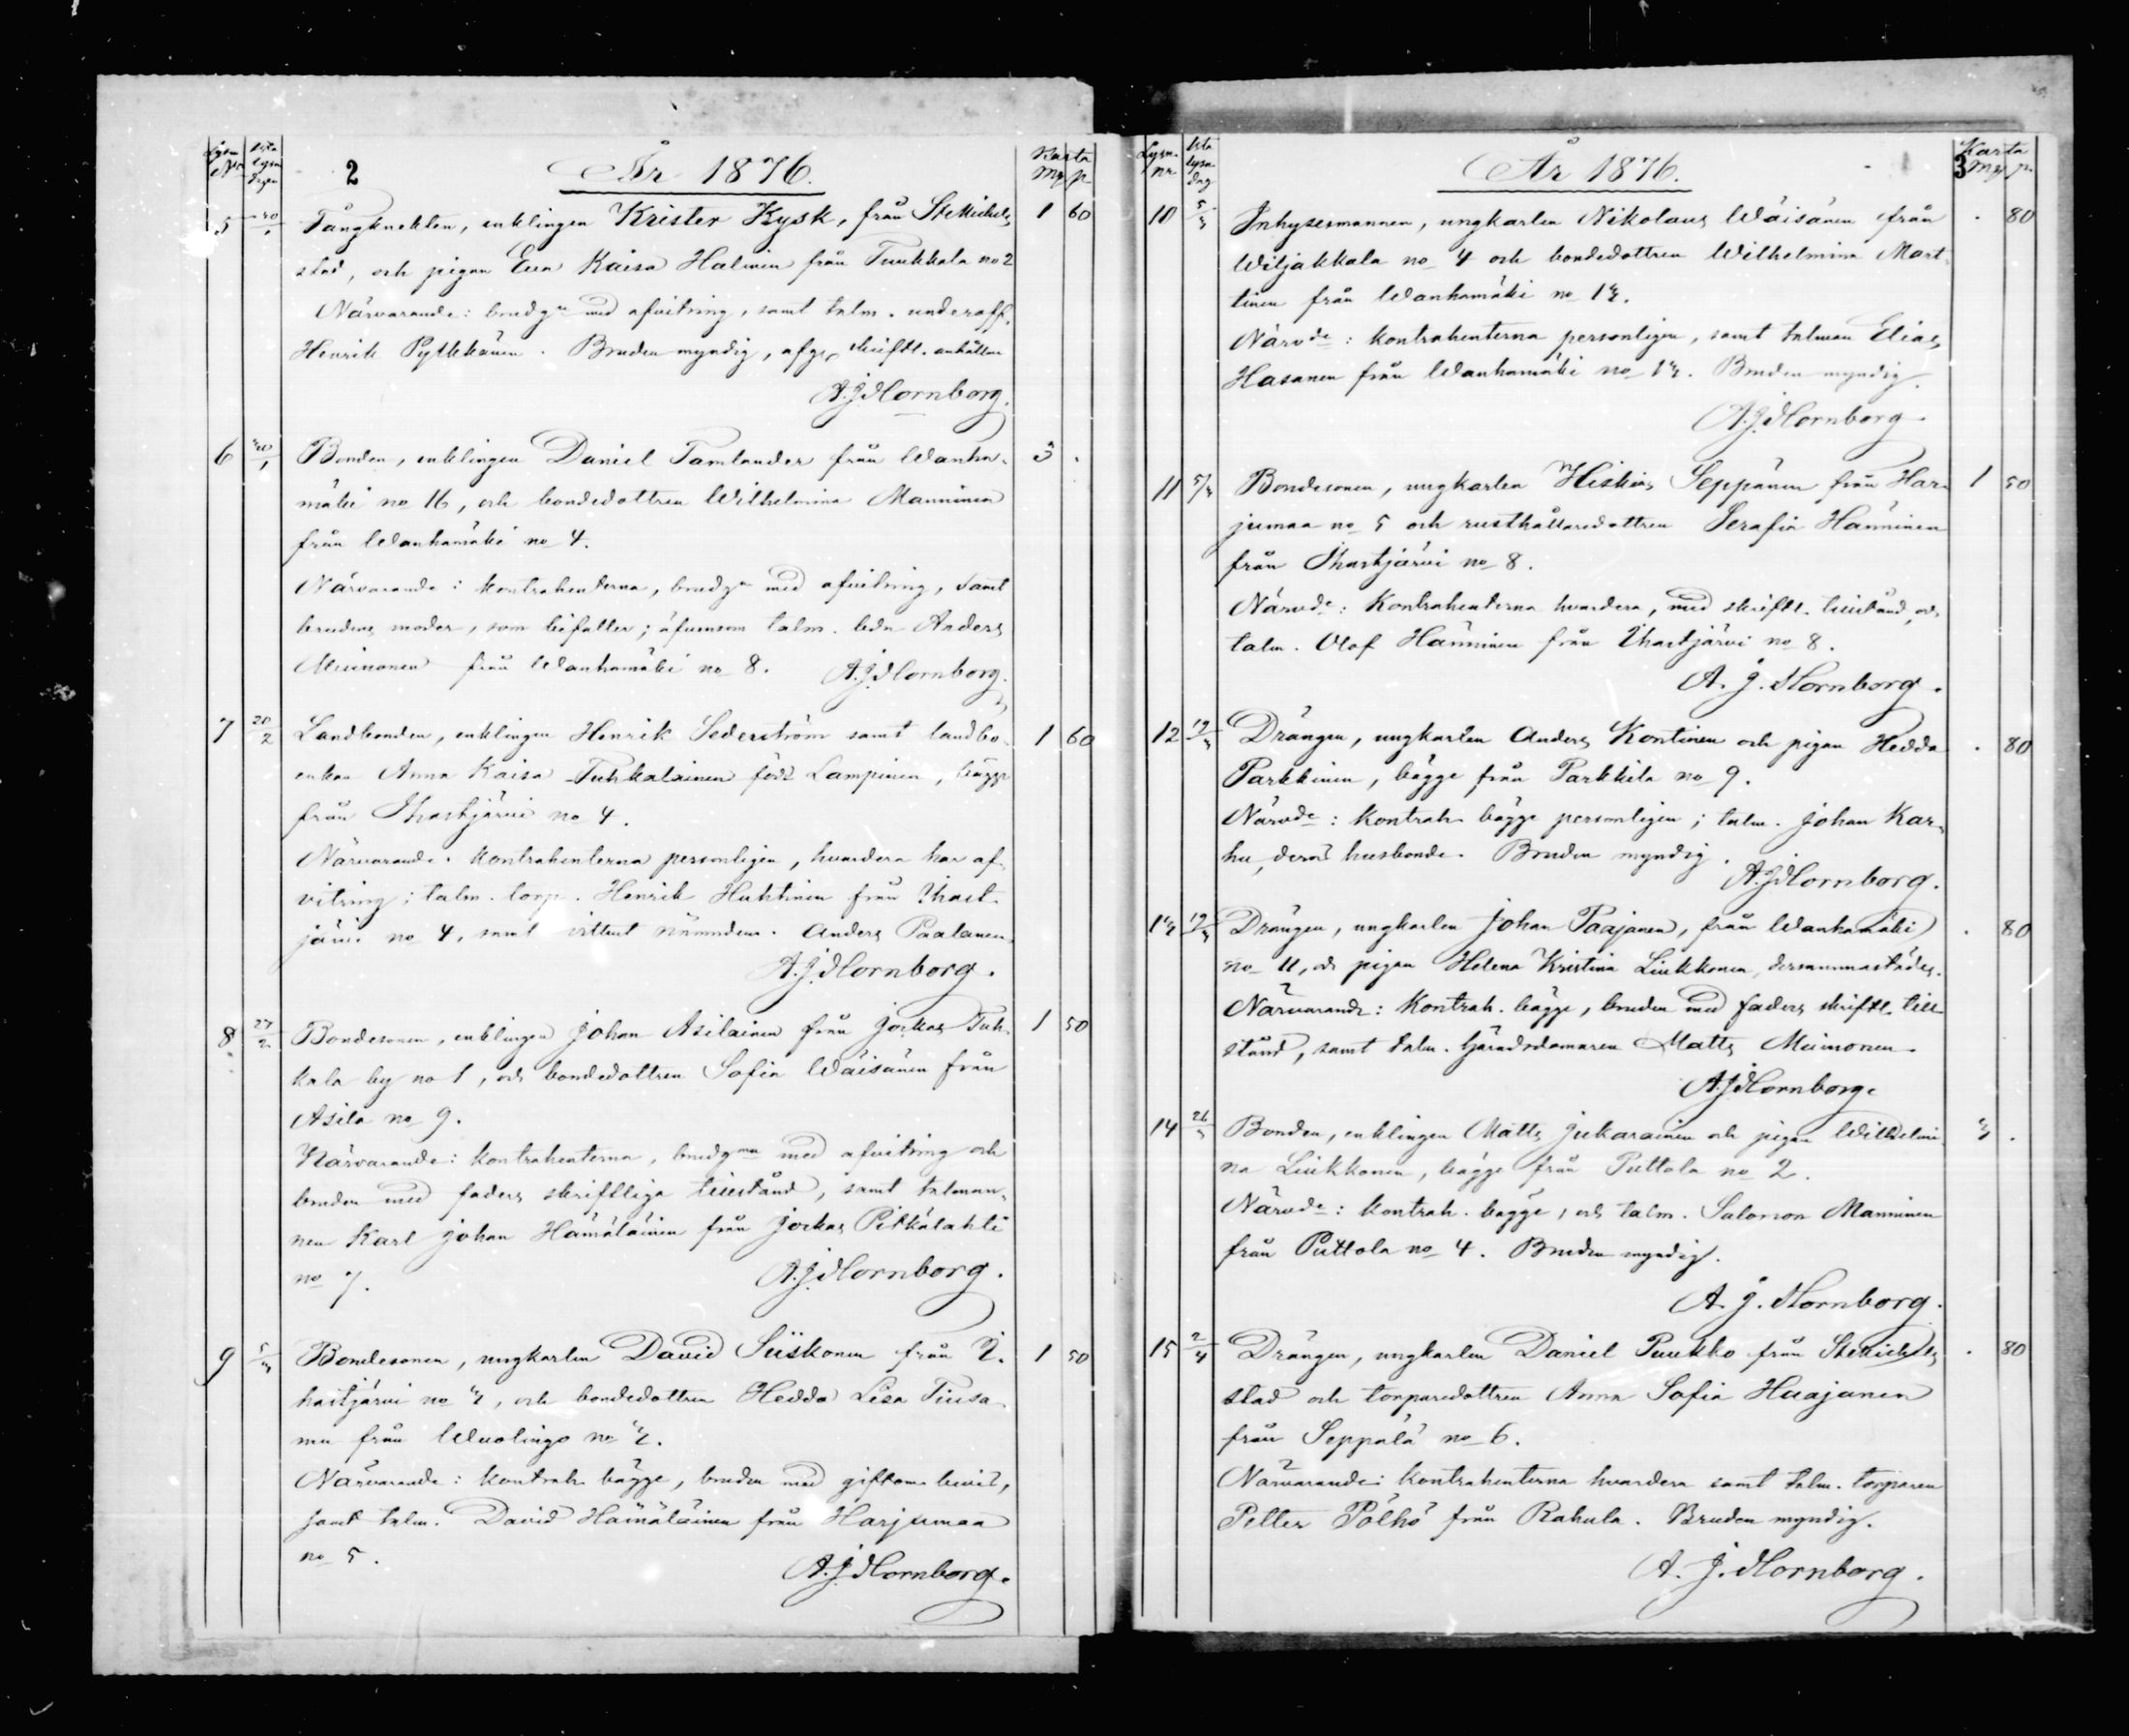 Lysn. Nr
1sta lysn. dagen
2
År 1876.
Kasta
Mk p
5 30/1 Fångknekten, enklingen Krister Kysk, från St Michels 1 60
stad, och pigan Eva Kaisa Halinin från Tuukkala no 2
Närvarande: brudgn med afvitring, samt talm. underoff.
Henrik Pylkkänen. Bruden myndig, afgr skriftl. anhållan
A.J. Hornborg.
6 30/1 Bonden, enklingen Daniel Tamlander från Wanha- 3 .
mäki no 16, och bondedottren Wilhelmina Manninen
från Wanhamäki no 4.
Närvarande: kontrahenterna, brudgn med afvitring, samt
brudens moder, som bifaller; äfvensom talm. bdn Anders
Muinonen från Wanhamäki no 8. A.J. Hornborg.
7 20/2 Landbonden, enklingen Henrik Sederström samt landbo- 1 60
enkan Anna Kaisa Tuhkalainen född Lampinen, bägge
från Ihastjärvi no 4.
Närvarande: kontrahenterna personligen, hvardera har af-
vitring; talm. torp. Henrik Huhtinen från Ihast-
järvi no 4, samt vittnet nämndem. Anders Paalanen.
A.J. Hornborg.
8 27/2 Bondesonen, enklingen Johan Asilainen från Jorkas Tuk- 1 50
kala by no 1, och bondedottren Sofia Wäisänen från
Asila no 9.
Närvarande: kontrahenterna, brudgmn med afvitring och
bruden med faders skriftliga tillstånd, samt talman-
nen Karl Johan Hämäläinen från Jorkas Pitkälahti
no 7. A.J. Hornborg.
9 5/3 Bondesonen, ungkarlen David Siiskonen från I- 1 50
hastjärvi no 3, och bondedottren Hedda Lisa Tiusa-
nen från Wuolingo no 3.
Närvarande: kontrah. bägge, bruden med giftom. bevis,
samt talm. David Hämäläinen från Harjumaa
no 5. A.J. Hornborg.
Lysn. nr
1sta lysn. dag
År 1876.
Karta
3 Mk p.
10 5/3 Inhysesmannen, ungkarlen Nikolaus Wäisänen från . 80
Wiljakkala no 4 och bondedottren Wilhelmina Mart-
tinen från Wanhamäki no 13.
Närvde: kontrahenterna personligen, samt talman Elias
Hasanen från Wanhamäki no 13. Bruden myndig.
A.J. Hornborg
11 5/3 Bondesonen, ungkarlen Hiskias Seppänen från Har- 1 50
jumaa no 5 och rusthållaredottren Serafia Hänninen
från Ihastjärvi no 8.
Närvde: Kontrahenterna hvardera, med skriftl. tillstånd, och
talm. Olof Hänninen från Ihastjärvi no 8.
A. J. Hornborg.
12 19/3 Drängen, ungkarlen Anders Kontinen och pigan Hedda . 80
Parkkinen, bägge från Parkkila no 9.
Närvde: kontrah. bägge personligen; talm. Johan Kar-
hu, deras husbonde. Bruden myndig.
A.J. Hornborg.
13 19/3 Drängen, ungkarlen Johan Paajanen, från Wanhamäki . 80
no 11, och pigan Helena Kristina Liukkonen, dersammastädes.
Närvarande: Kontrah. bägge, bruden med faders skriftl. till-
stånd, samt talm. häradsdomaren Matts Muinonen.
A.J. Hornborg.
14 26/3 Bonden, enklingen Matts Jukarainen och pigan Wilhelmi- 3 .
na Liukkonen, bägge från Puttola no 2.
Närvde: kontrah. bägge, och talm. Salomon Manninen
från Puttola no 4. Bruden myndig.
A. J. Hornborg.
15 2/4 Drängen, ungkarlen Daniel Puukko från St Michels . 80
stad och torparedottren Anna Sofia Haajanen
från Seppälä no 6.
Närvarande: kontrahenterna hvardera samt talm. torparen
Petter Pölhö från Rahula. Bruden myndig.
A. J. Hornborg.